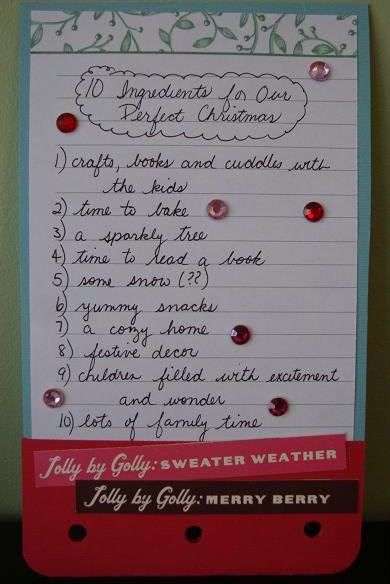 10 Ingredients for Our
Perfect Christmas
1) crafts, books and cuddles with
the kids
2) time to bake
3) a sparkly tree
4) time to read a book
5) some snow (??)
6) yummy snacks
7) a cozy home
8) festive decor
9) children filled with excitement
and wonder
10) lots of family time
Jolly by Golly: SWEATER WEATHER
Jolly by Golly: MERRY BERRY